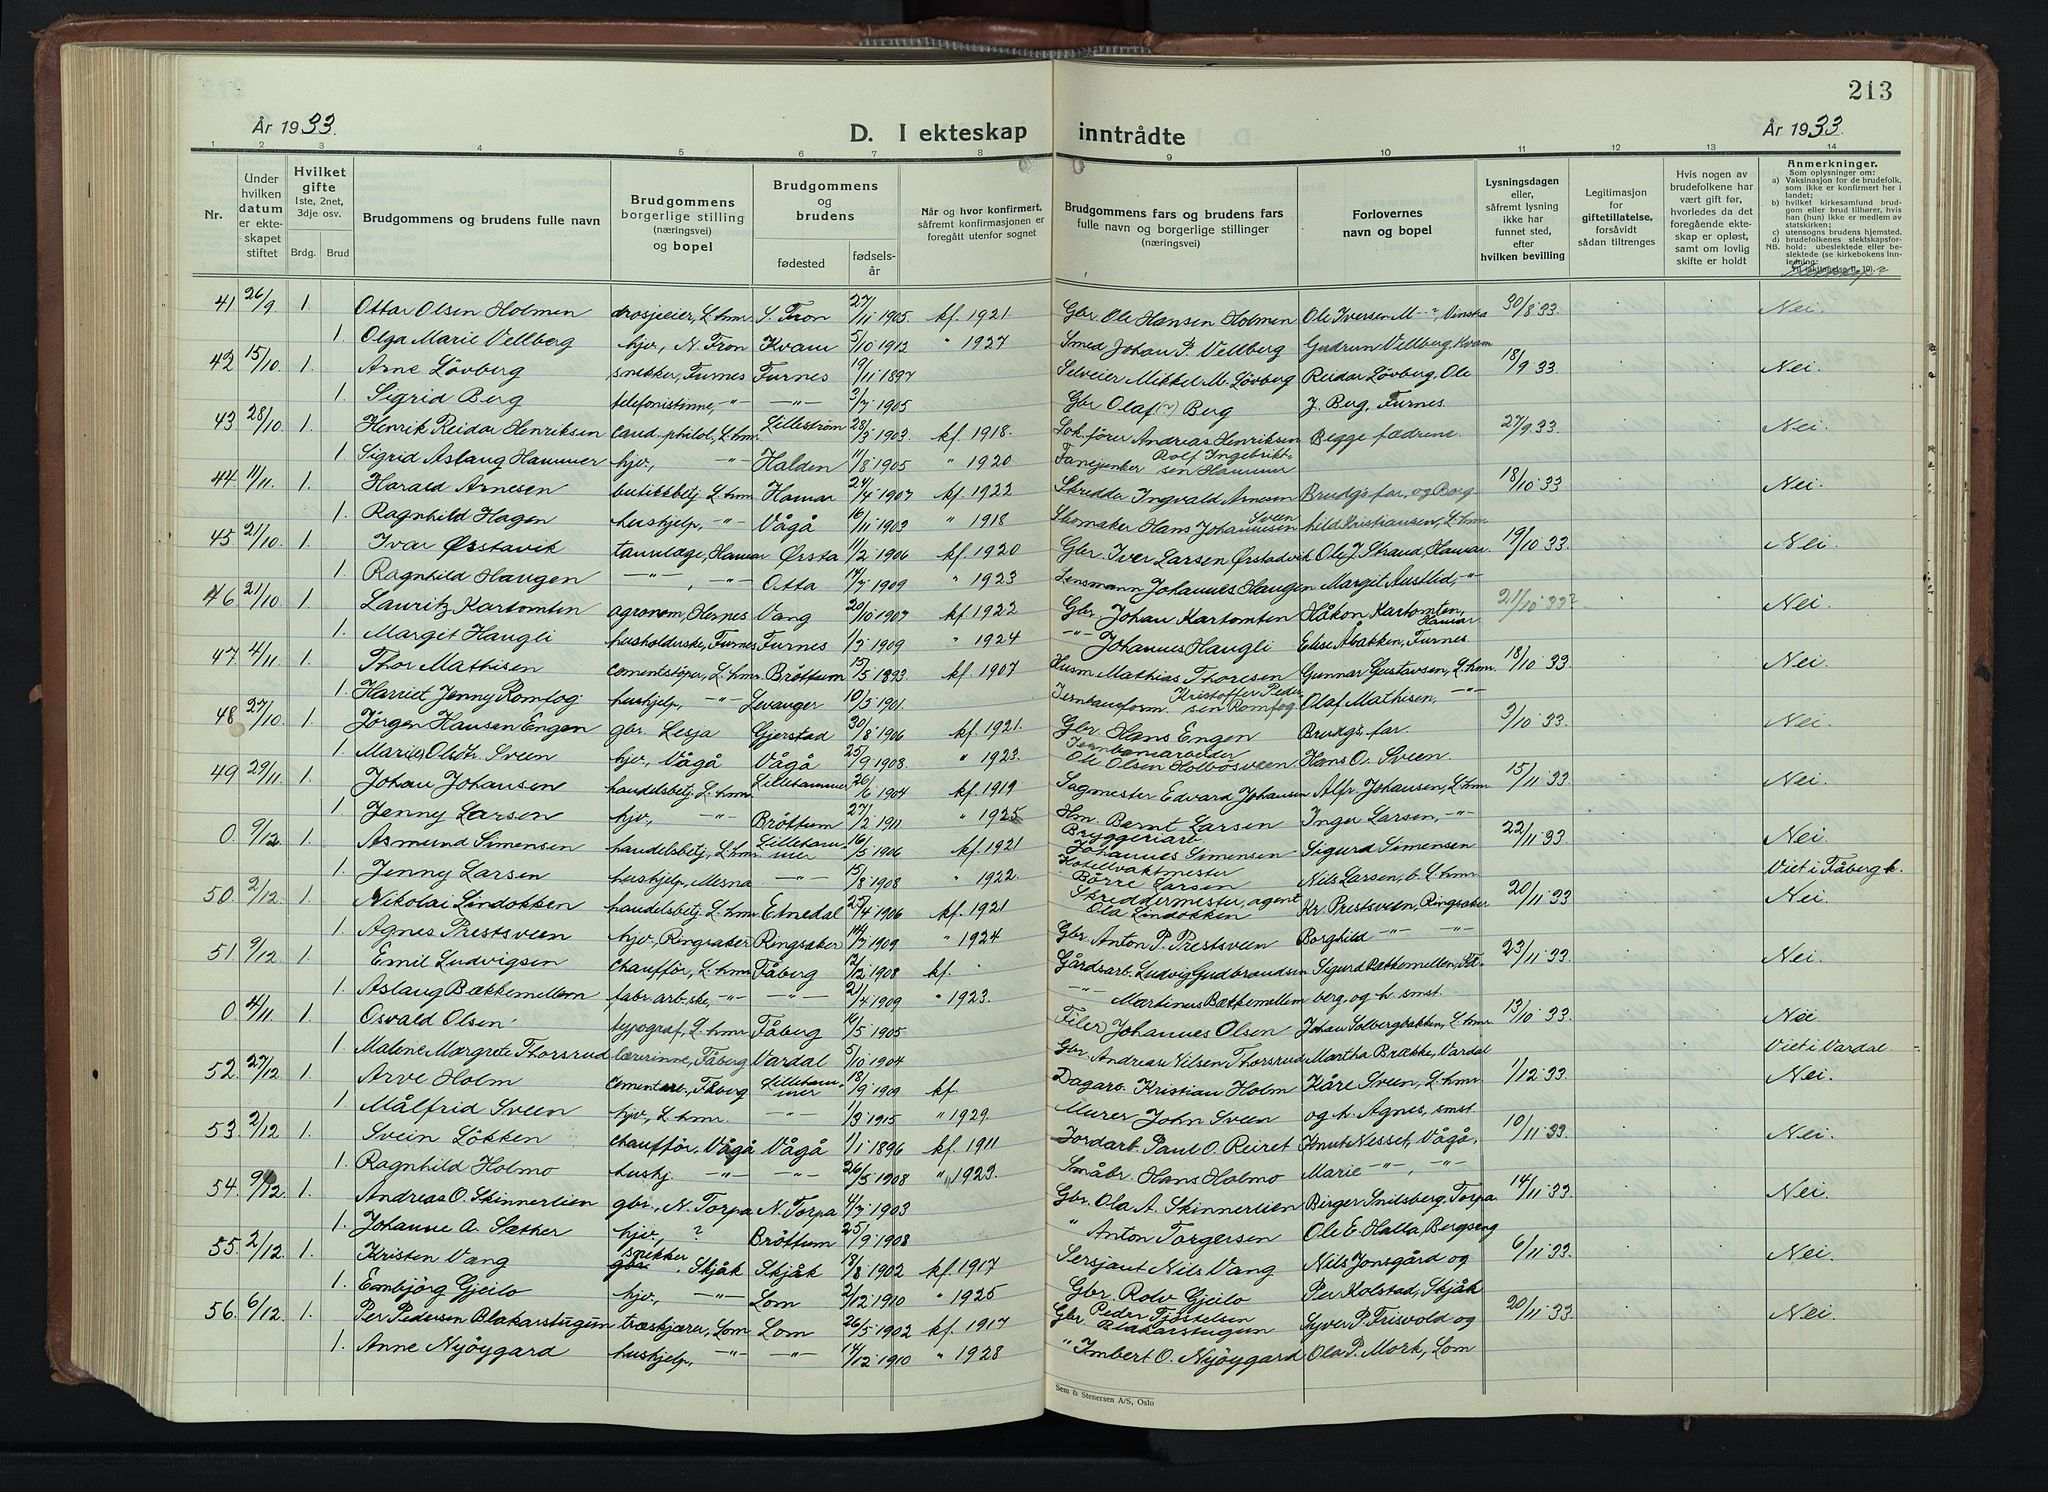 213
År 1933.
D. I ekteskap inntrådte
År 1933.
1 2 3 4 5 6 7 8 9 10 11 12 13 14
Nr.
Under hvilken datum er ekteskapet stiftet
Hvilket gifte 1ste, 2net, 3dje osv. Brdg. Brud
Brudgommens og brudens fulle navn
Brudgommens borgerlige stilling (næringsvei) og bopel
Brudgommens og brudens fødested fødselsår
Når og hvor konfirmert, såfremt konfirmasjonen er foregått utenfor sognet
Brudgommens fars og brudens fars fulle navn og borgerlige stillinger (næringsvei)
Forlovernes navn og bopel
Lysningsdagen eller, såfremt lysning ikke har funnet sted, efter hvilken bevilling
Legitimasjon for giftetillatelse, forsåvidt sådan tiltrenges
Hvis nogen av brudefolkene har vært gift før, hvorledes da det foregående ekteskap er opløst, samt om lovlig skifte er holdt
Anmerkninger. Som oplysninger om: a) Vaksinasjon for de brudefolk, som ikke er konfirmert her i landet; b) hvilket kirkesamfund brudgom eller brud tilhører, hvis han (hun) ikke er medlem av statskirken; c) utensogns brudens hjemsted. d) brudefolkenes slektskapsforhold: ubeslektede eller beslektede (se kirkebokens innledning
41 26/9 1. Ottar Olsen Holmen drosjeeier, L.hmr. S. Fron 27/11 1905. kf. 1921. Gbr. Ole Hansen Holmen Ole Iversen M Vinstra 30/8 33. Nei.
1. Olga Marie Vellberg hjv., N. Fron Kvam 5/10 1912 " 1927 Smed Johan P. Vellberg Gudrun Vellberg, Kvam
42 15/10 1. Arne Lövberg snekker, Furnes Furnes 19/11 1897 Selveier Mikkel M. Lövberg Reidar Lövberg, Ole 18/9 33. Nei.
1. Sigrid Berg telefonistinne, -"- -"- 3/7 1905 Gbr Olaf Berg J. Berg, Furnes.
43. 28/10 1. Henrik Reidar Henriksen cand. philol., L.hmr. Lilleström 28/3 1903. kf. 1918. Lok.förer Andreas Henriksen Begge fædrene. 27/9 33. Nei.
1. Sigrid Aslaug Hammer hjv., -"- Halden 11/8 1905 " 1920 Fanejunker Rolf Ingebriktsen Hammer
44. 11/11. 1. Harald Arnesen butikkbetj. L.hmr. Hamar 24/4 1907 kf. 1922 Skredder Ingvald Arnesen Brudg's far, og Borg- 18/10 33 Nei.
1. Ragnhild Hagen hushjelp, -"- Vågå 16/11 1902 " 1918 Skomaker Hans Johannesen Sveen hild Kristiansen, L.hmr
45. 21/10. 1. Ivar Ørstavik tannlæge, Hamar Ørsta 11/2 1906 kf. 1920 Gbr. Iver Larsen Ørstadvik Ole J. Strand, Hamar. 19/10 33. Nei.
1. Ragnhild Haugen -"-, -"- Otta 14/7 1909 " 1923 Lensmann Johannes Haugen Margit Austlid, -"-
46. 21/10. 1. Lauritz Kartomten agronom, Hernes Vang 20/10 1907 kf. 1922 Gbr. Johan Kartomten Håkon Kartomten, Hamar 21/10 33? Nei.
1. Margit Haugli husholderske, Furnes Furnes 1/3 1909 " 1924 -"- Johannes Haugli Elise Åbakken, Furnes
47. 4/11. 1. Thor Mathisen cementstöper, L.hmr. Bröttum 15/5 1893 kf. 1907 Husm Mathias Thoresen Gunnar Gustavsen, L.hmr. 18/10 33. Nei.
1. Harriet Jenny Romfog hushjelp, -"- Levanger 10/5 1901. Jernbaneform. Kristoffer Pedersen Romfog Olaf Mathisen, -"-
48. 27/10 1. Jörgen Hansen Engen gbr. Lesja Gjerstad 30/8 1906 kf. 1921. Gbr. Hans Engen Brudg's far. 3/10 33. Nei.
1. Marie Olsdtr. Sveen hjv., Vågå Vågå 25/9 1908. " 1923. Jernbanearbeider Ole Olsen Holbösveen Hans O. Sveen.
49 29/11. 1. Johan Johansen handelsbetj. L.hmr. Lillehammer 26/6 1904 kf. 1919 Sagmester Edvard Johansen Alfr. Johansen, L.hmr. 15/11 33. Nei.
1. Jenny Larsen hjv., -"- Bröttum 27/2 1911 " 1925 Hm. Bernt Larsen Inger Larsen, -"-
0. 9/12. 1. Asmund Simensen handelsbetj., L.hmr. Lillehammer 16/5 1906 kf. 1921 Bryggeriarb. Johannes Simensen Sigurd Simensen 22/11 33. Nei.
1. Jenny Larsen hushjelp, Mesna -"- 15/8 1908 " 1922. Hotellvaktmester Börre Larsen Nils Larsen, b. L.hmr. Viet i Fåberg k.
50. 2/12. 1. Nikolai Lindokken handelsbetj. L.hmr. Etnedal 25/4 1906 kf. 1921 Skreddermester, agent Ola Lindokken Kr. Prestsveen, Ringsaker 20/11 33. Nei.
1. Agnes Prestsveen hjv., Ringsaker Ringsaker 14/7 1909 " 1924 Gbr Anton P. Prestsveen Borghild -"- -"-
51. 9/12. 1. Emil Ludvigsen chaufför, L.hmr. Fåberg 12/12 1908 kf. Gårdsarb. Ludvig Gudbrandsen Sigurd Bækkemellem, Få- 23/11 33. Nei.
1. Aslaug Bækkemellem fabr.arb.ske, -"- -"- 21/4 1909 " 1923. -"- Martinus Bækkemellem berg, og h. smst.
0. 4/11. 1. Osvald Olsen typograf, L.hmr. Fåberg 16/5 1905 Filer Johannes Olsen Johan Solbergbakken, L.hmr. 13/10 33. Nei.
1. Malene Margrete Thorsrud lærerinne, Fåberg Vardal 5/10 1904 Gbr Andreas Nilsen Thorsrud Martha Brække, Vardal Viet i Vardal.
52. 27/12. 1. Arve Holm cementarb., Fåberg Lillehammer 13/9 1909 kf. Dagarb. Kristian Holm Kåre Sveen, L.hmr. 1/12 33. Nei.
1. Målfrid Sveen hjv., L.hmr. -"- 1/3 1915 " 1929. Murer John Sveen og h. Agnes, smst.
53. 2/12 1. Svein Lökken chaufför, Vågå Vågå 1/1 1896 kf. 1911 Jordarb. Paul O. Reiret Knut Nesset, Vågå, 10/11 33. Nei.
1. Ragnhild Holmo hushj. -"- -"- 26/5 1908 " 1923. Småbr. Hans Holmo Marie -"-, -"-
54. 9/12. 1. Andreas O. Skinnerlien gbr., N. Torpa N. Torpa 4/7 1903 Gbr. Ola A. Skinnerlien Birger Snilsberg, Torpa 14/11 33. Nei.
1. Johanne A. Sæther hjv., ? Bröttum 25/9 1908 " Anton Torgersen Ole E. Halla, Bergseng
55. 2/12. 1. Kristen Vang snekker gbr., Skjåk Skjåk 13/8 1902 kf. 1917 Sersjant Nils Vang Nils Jonsgård og 6/11 33. Nei.
1. Embjörg Gjeilo hjv., -"- Lom 2/12 1910 " 1925 Gbr. Rolv Gjeilo Per Kolstad, Skjåk
56. 6/12. 1. Per Pedersen Blakarstugun træskjærer, Lom Lom 26/5 1902 kf. 1917 Gbr. Peder Fjöstelsen Blakarstugun Syver P. Frisvold og 20/11 33. Nei.
1. Anne Nyöygard hushjelp, -"- -"- 14/12 1910 " 1928 " Imbert O. Nyöygard Ola P. Mork, Lom
Sem & Stenersen A/S, Oslo